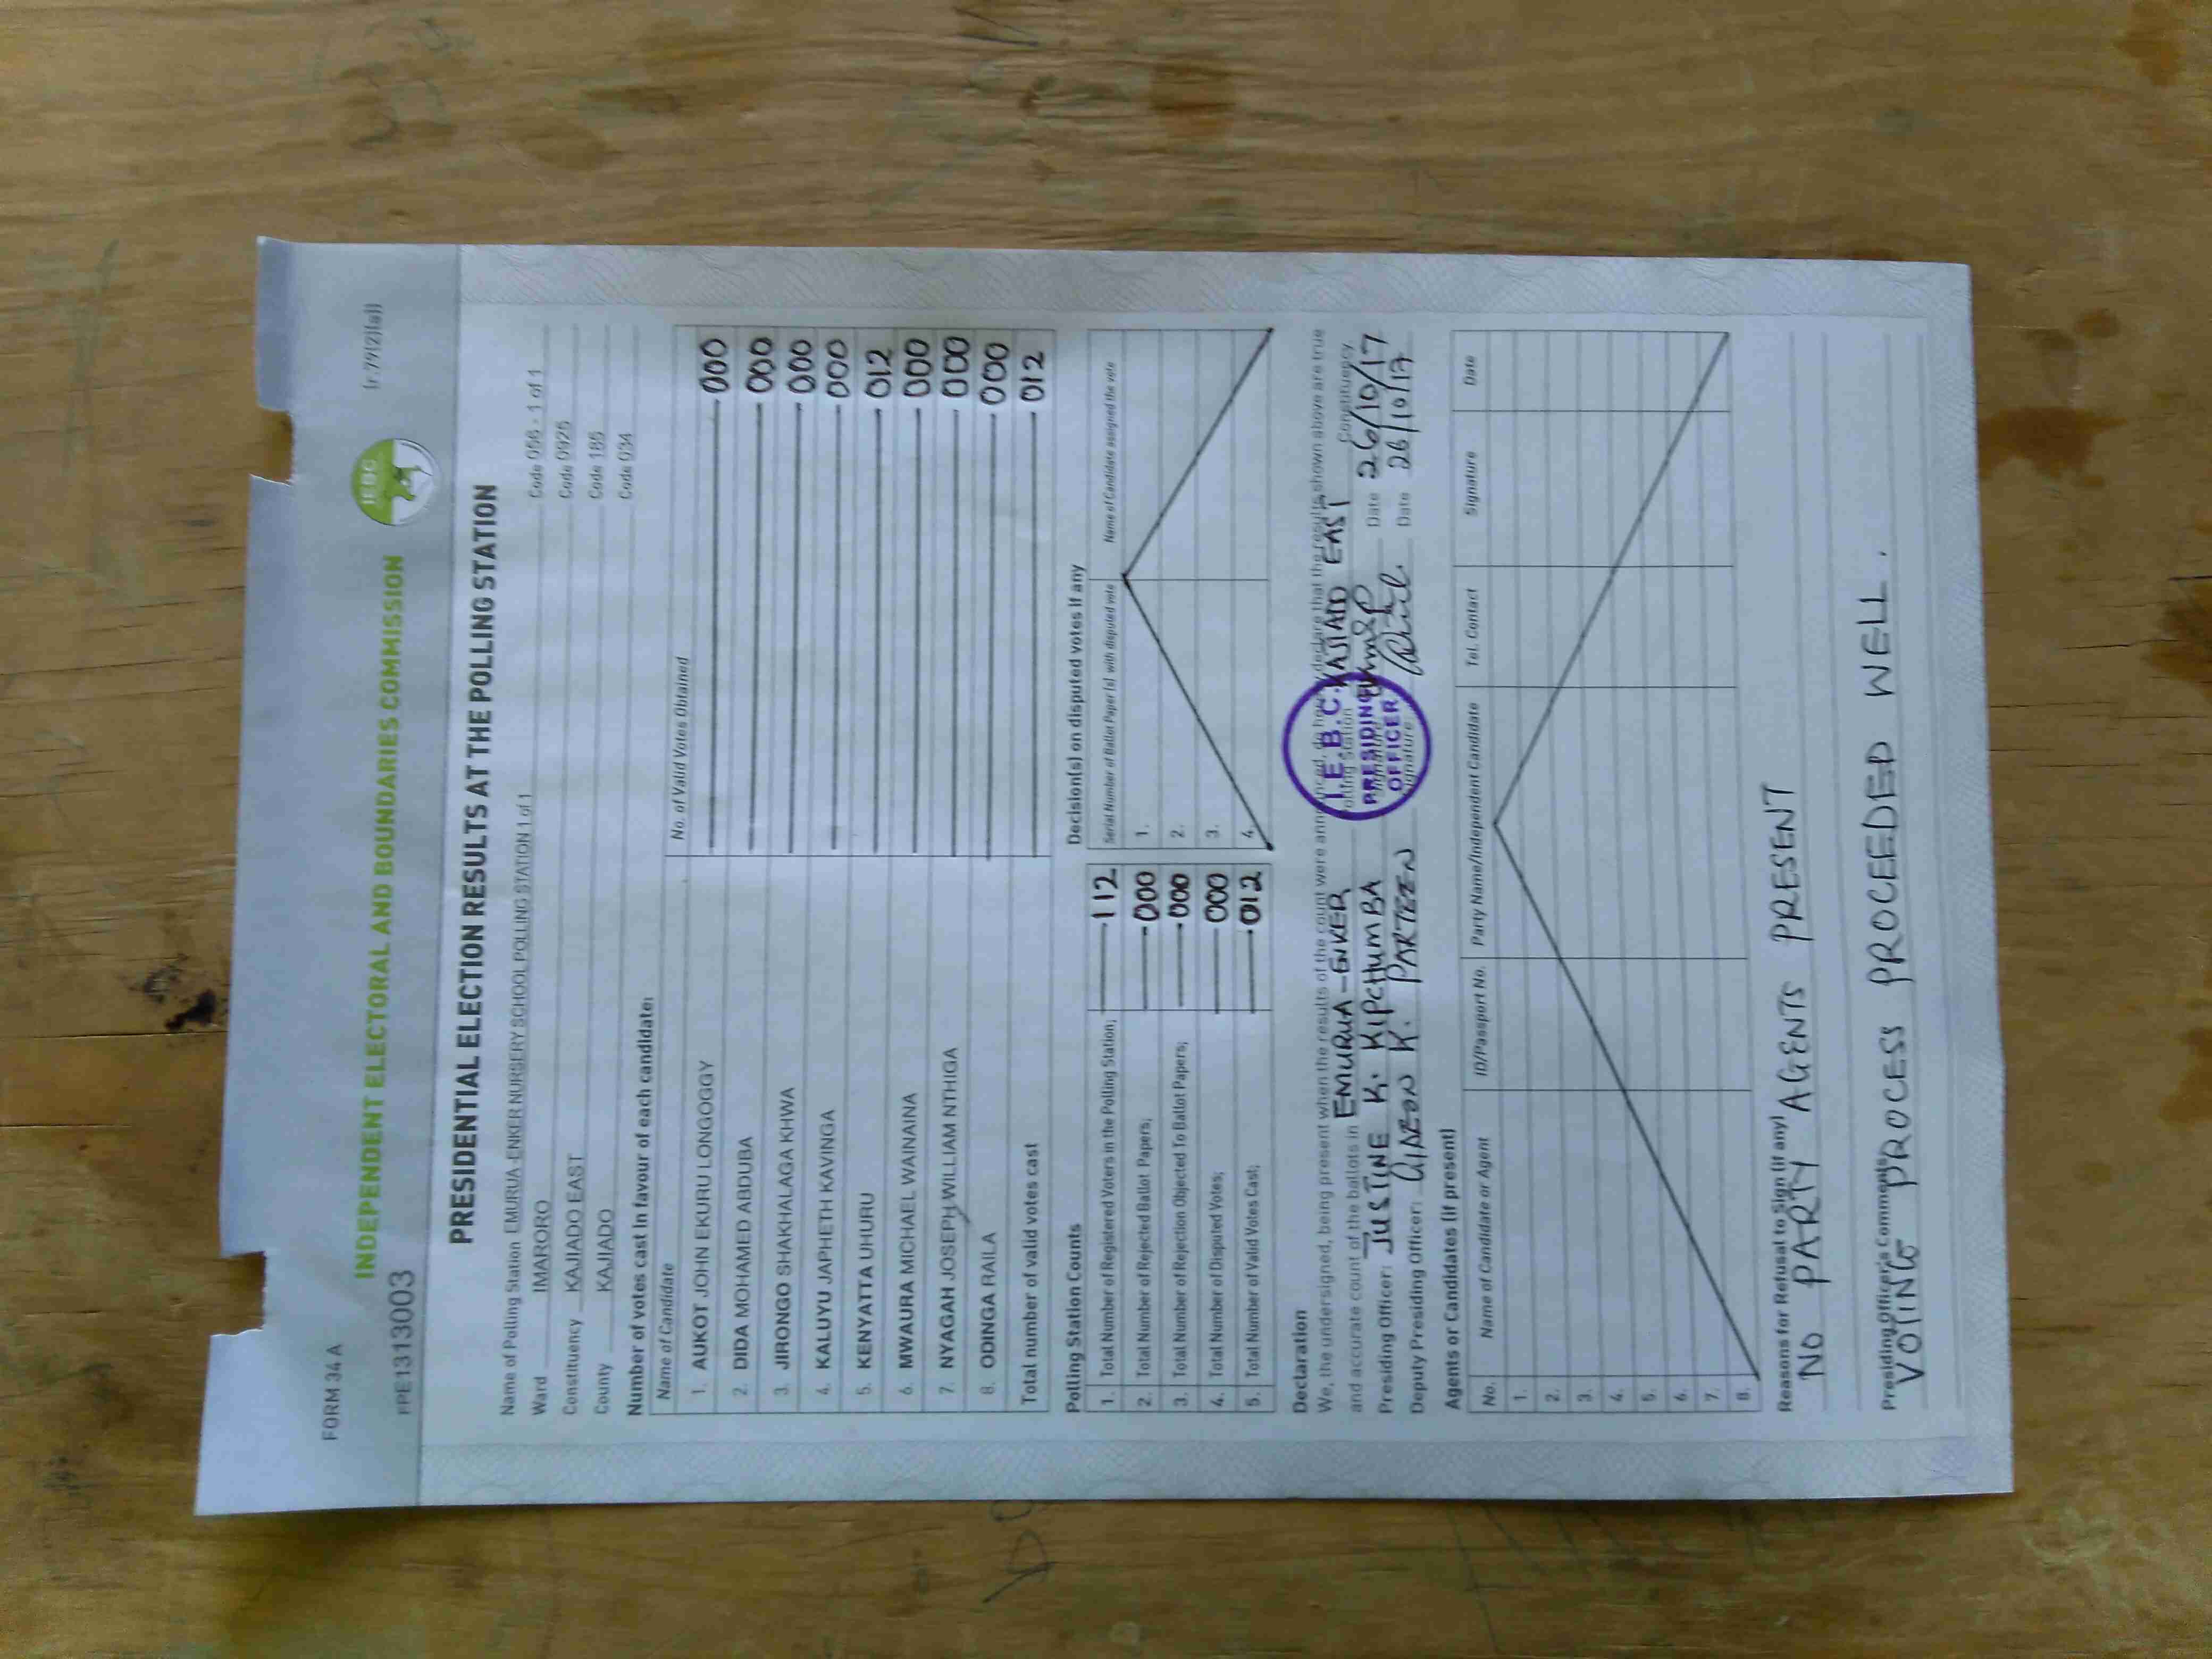 FORM 34 A
(r.79(2)(a))
IEBC
INDEPENDENT ELECTORAL AND BOUNDARIES COMMISSION
PRE1313003
PRESIDENTIAL ELECTION RESULTS AT THE POLLING STATION
Name of Polling Station EMURUA-ENKER NURSERY SCHOOL POLLING STATION 1 of 1 Code 056 - 1 of 1
Ward IMARORO Code 0925
Constituency KAJIADO EAST Code 185
County KAJIADO Code 034
Number of votes cast in favour of each candidate:
Name of Candidate No. of Valid Votes Obtained
1. AUKOT JOHN EKURU LONGOGGY 000
2. DIDA MOHAMED ABDUBA 000
3. JIRONGO SHAKHALAGA KHWA 000
4. KALUYU JAPHETH KAVINGA 000
5. KENYATTA UHURU 012
6. MWAURA MICHAEL WAINAINA 000
7. NYAGAH JOSEPH WILLIAM NTHIGA 000
8. ODINGA RAILA 000
Total number of valid votes cast 012
Polling Station Counts
1. Total Number of Registered Voters in the Polling Station; 112
2. Total Number of Rejected Ballot Papers; 000
3. Total Number of Rejection Objected To Ballot Papers; 000
4. Total Number of Disputed Votes; 000
5. Total Number of Valid Votes Cast; 012
Decision(s) on disputed votes if any
Serial Number of Ballot Paper(s) with disputed vote Name of Candidate assigned the vote
1.
2.
3.
4.
Declaration
We, the undersigned, being present when the results of the count were announced, do hereby declare that the results shown above are true
and accurate count of the ballots in EMURUA-ENKER Polling Station KAJIADO EAST Constituency
Presiding Officer: JUSTINE K. KIPCHUMBA Signature Date 26/10/17
Deputy Presiding Officer: GIDEON K. PARTEEN Signature: Date 26/10/17
I.E.B.C.
PRESIDING
OFFICER
Agents or Candidates (if present)
No. Name of Candidate or Agent ID/Passport No. Party Name/Independent Candidate Tel. Contact Signature Date
1.
2.
3.
4.
5.
6.
7.
8.
Reasons for Refusal to Sign (if any)
NO PARTY AGENTS PRESENT
Presiding Officer's Comments
VOTING PROCESS PROCEEDED WELL.